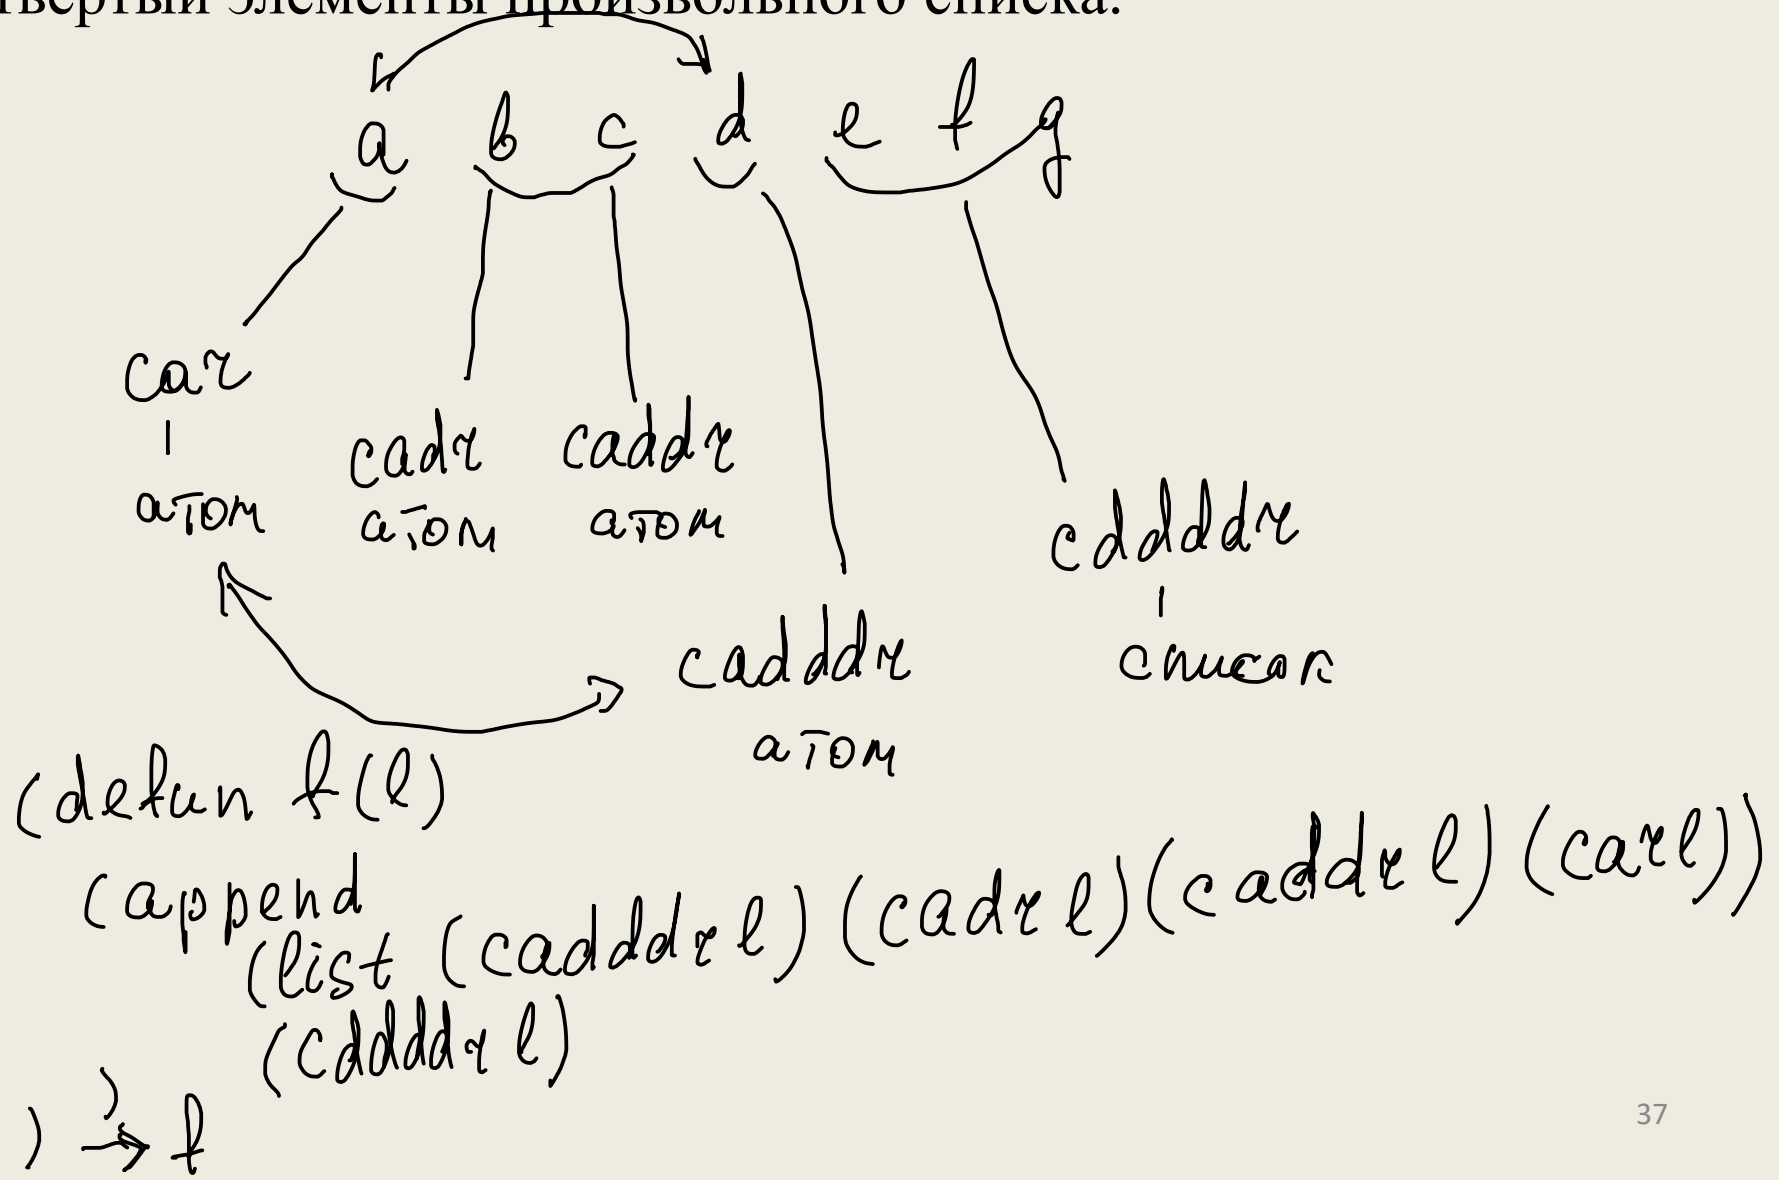 твертый элементы произвольного списка.
a b c d e f g
car
cadr caddr
атом атом атом
cddddr
cadddr список
атом
(defun f(l)
(append
(list (cadddr l) (cadr l) (caddr l) (car l))
(cddddr l)
)
) → f
37